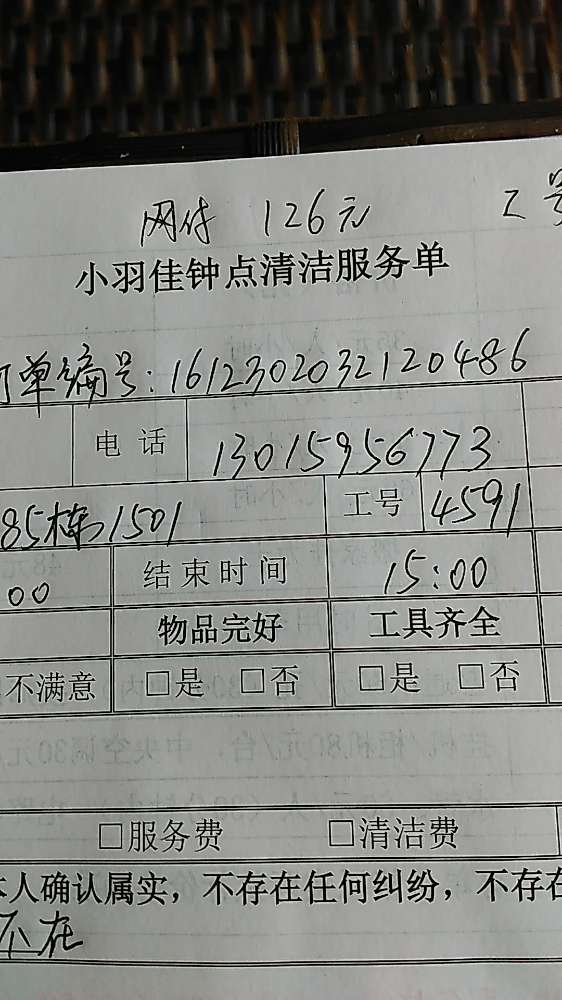 网付 126元 工号
小羽佳钟点清洁服务单
订单编号:1612302032120486
电话 13015956773
85栋1501 工号 4591
:00 结束时间 15:00
物品完好 工具齐全
不满意 □是 □否 □是 □否
□服务费 □清洁费
本人确认属实，不存在任何纠纷，不存在
不在